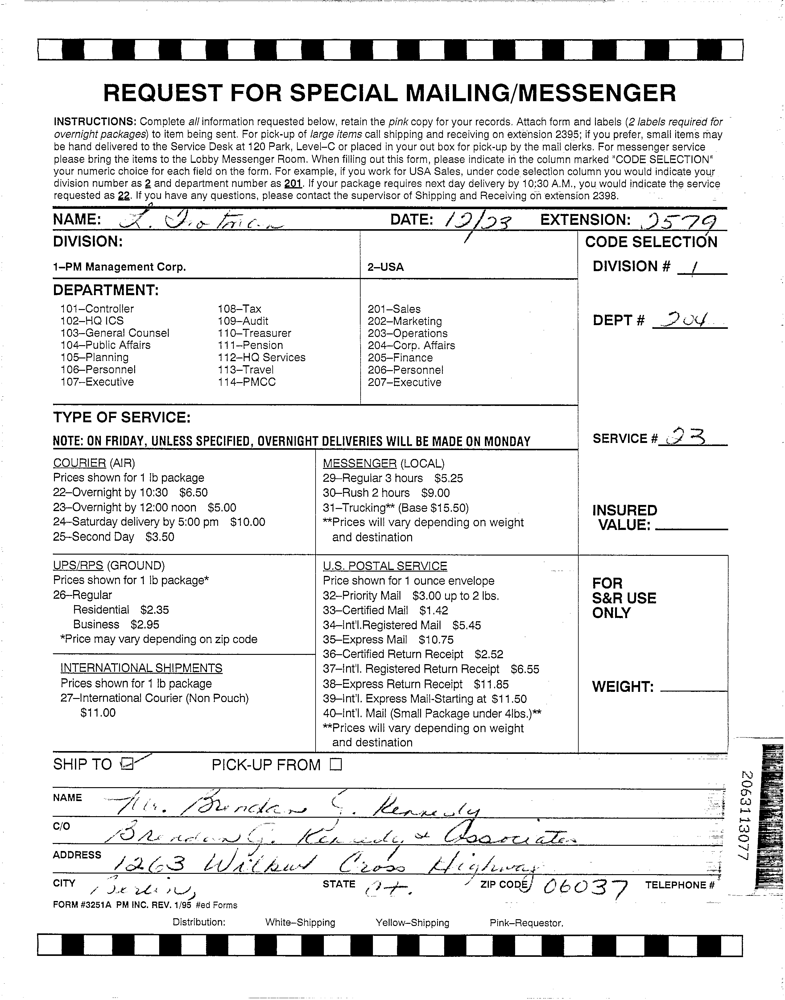 REQUEST FOR SPECIAL MAILING/MESSENGER
INSTRUCTIONS: Complete all information requested below, retain the pink copy for your records. Attach form and labels (2 labels required for
overnight packages) to item being sent. For pick-up of large items call shipping and receiving on extension 2395; if you prefer, small items may
be hand delivered to the Service Desk at 120 Park, Level–C or placed in your out box for pick-up by the mail clerks. For messenger service
please bring the items to the Lobby Messenger Room. When filling out this form, please indicate in the column marked "CODE SELECTION"
your numeric choice for each field on the form. For example, if you work for USA Sales, under code selection column you would indicate your
division number as 2 and department number as 201. If your package requires next day delivery by 10:30 A.M., you would indicate the service
requested as 22. If you have any questions, please contact the supervisor of Shipping and Receiving on extension 2398.
NAME: DATE: 12/23 EXTENSION: 2579
DIVISION: CODE SELECTION
1–PM Management Corp. 2–USA DIVISION # 1
DEPARTMENT:
101–Controller 108–Tax 201–Sales
102–HQ ICS 109–Audit 202–Marketing
103–General Counsel 110–Treasurer 203–Operations
104–Public Affairs 111–Pension 204–Corp. Affairs
105–Planning 112–HQ Services 205–Finance
106–Personnel 113–Travel 206–Personnel
107–Executive 114–PMCC 207–Executive
DEPT # 204
TYPE OF SERVICE:
NOTE: ON FRIDAY, UNLESS SPECIFIED, OVERNIGHT DELIVERIES WILL BE MADE ON MONDAY
SERVICE # 23
COURIER (AIR)
Prices shown for 1 lb package
22–Overnight by 10:30 $6.50
23–Overnight by 12:00 noon $5.00
24–Saturday delivery by 5:00 pm $10.00
25–Second Day $3.50
MESSENGER (LOCAL)
29–Regular 3 hours $5.25
30–Rush 2 hours $9.00
31–Trucking** (Base $15.50)
**Prices will vary depending on weight
and destination
INSURED
VALUE:
UPS/RPS (GROUND)
Prices shown for 1 lb package*
26–Regular
Residential $2.35
Business $2.95
*Price may vary depending on zip code
INTERNATIONAL SHIPMENTS
Prices shown for 1 lb package
27–International Courier (Non Pouch)
$11.00
U.S. POSTAL SERVICE
Price shown for 1 ounce envelope
32–Priority Mail $3.00 up to 2 lbs.
33–Certified Mail $1.42
34–Int'l.Registered Mail $5.45
35–Express Mail $10.75
36–Certified Return Receipt $2.52
37–Int'l. Registered Return Receipt $6.55
38–Express Return Receipt $11.85
39–Int'l. Express Mail-Starting at $11.50
40–Int'l. Mail (Small Package under 4lbs.)**
**Prices will vary depending on weight
and destination
FOR
S&R USE
ONLY
WEIGHT:
SHIP TO ☑ PICK-UP FROM ☐
NAME Mr. Brendan G. Kennedy
C/O Brendan G. Kennedy & Associates
ADDRESS 1263 Wilbur Cross Highway
CITY Berlin, STATE Ct. ZIP CODE 06037 TELEPHONE #
FORM #3251A PM INC. REV. 1/95 #ed Forms
Distribution: White–Shipping Yellow–Shipping Pink–Requestor.
2063113077